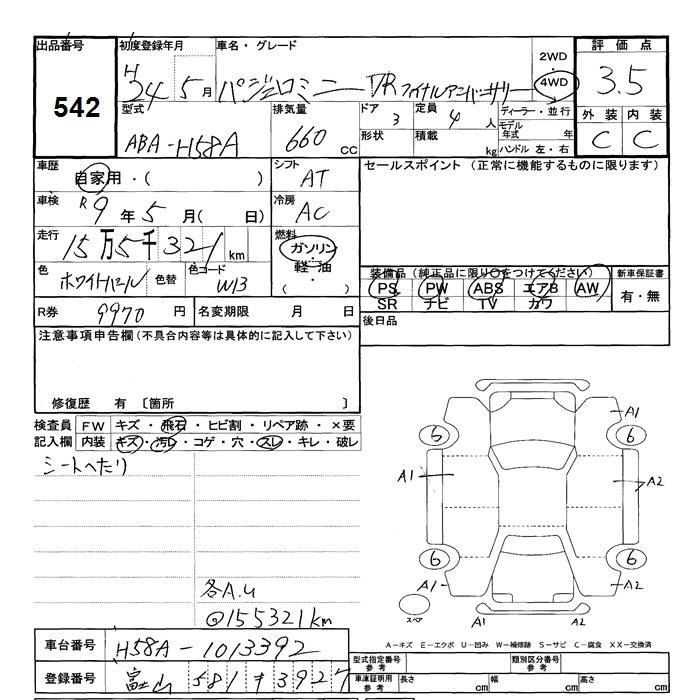 出品番号
542
初度登録年月
H24 5月
車名・グレード
パジェロミニ VRファイナルアニバーサリー
2WD
・
4WD
評価点
3.5
外装 内装
C C
型式
ABA-H58A
排気量
660 cc
ドア
3
定員
4人
形状
積載
kg
ディーラー・並行
モデル年式 年
ハンドル 左・右
車歴
自家用・( )
シフト
AT
セールスポイント (正常に機能するものに限ります)
車検
R9年5月( 日)
冷房
AC
走行
15万5千321km
燃料
ガソリン
軽・油
( )
色
ホワイトパール
色替
色コード
W13
装備品 (純正品に限り○をつけてください)
PS PW ABS エアB AW
SR ナビ TV カワ
新車保証書
有・無
R券 9970円
名変期限 月 日
後日品
注意事項申告欄(不具合内容等は具体的に記入して下さい)
修復歴 有 〔箇所 〕
検査員記入欄
FW キズ・飛石・ヒビ割・リペア跡・×要
内装 キズ・汚レ・コゲ・穴・スレ・キレ・破レ
シートへたり
各A.U
@155321km
A1
6 6
A1 A2
6 6
A1 A2
スペア
A1 A2
A-キズ E-エクボ U-凹み W-補修跡 S-サビ C-腐食 XX-交換済
車台番号 H58A-1013392
登録番号 富士山 581 サ 3927
型式指定番号 参考
類別区分番号 参考
車庫証明用 参考
長さ cm
幅 cm
高さ cm